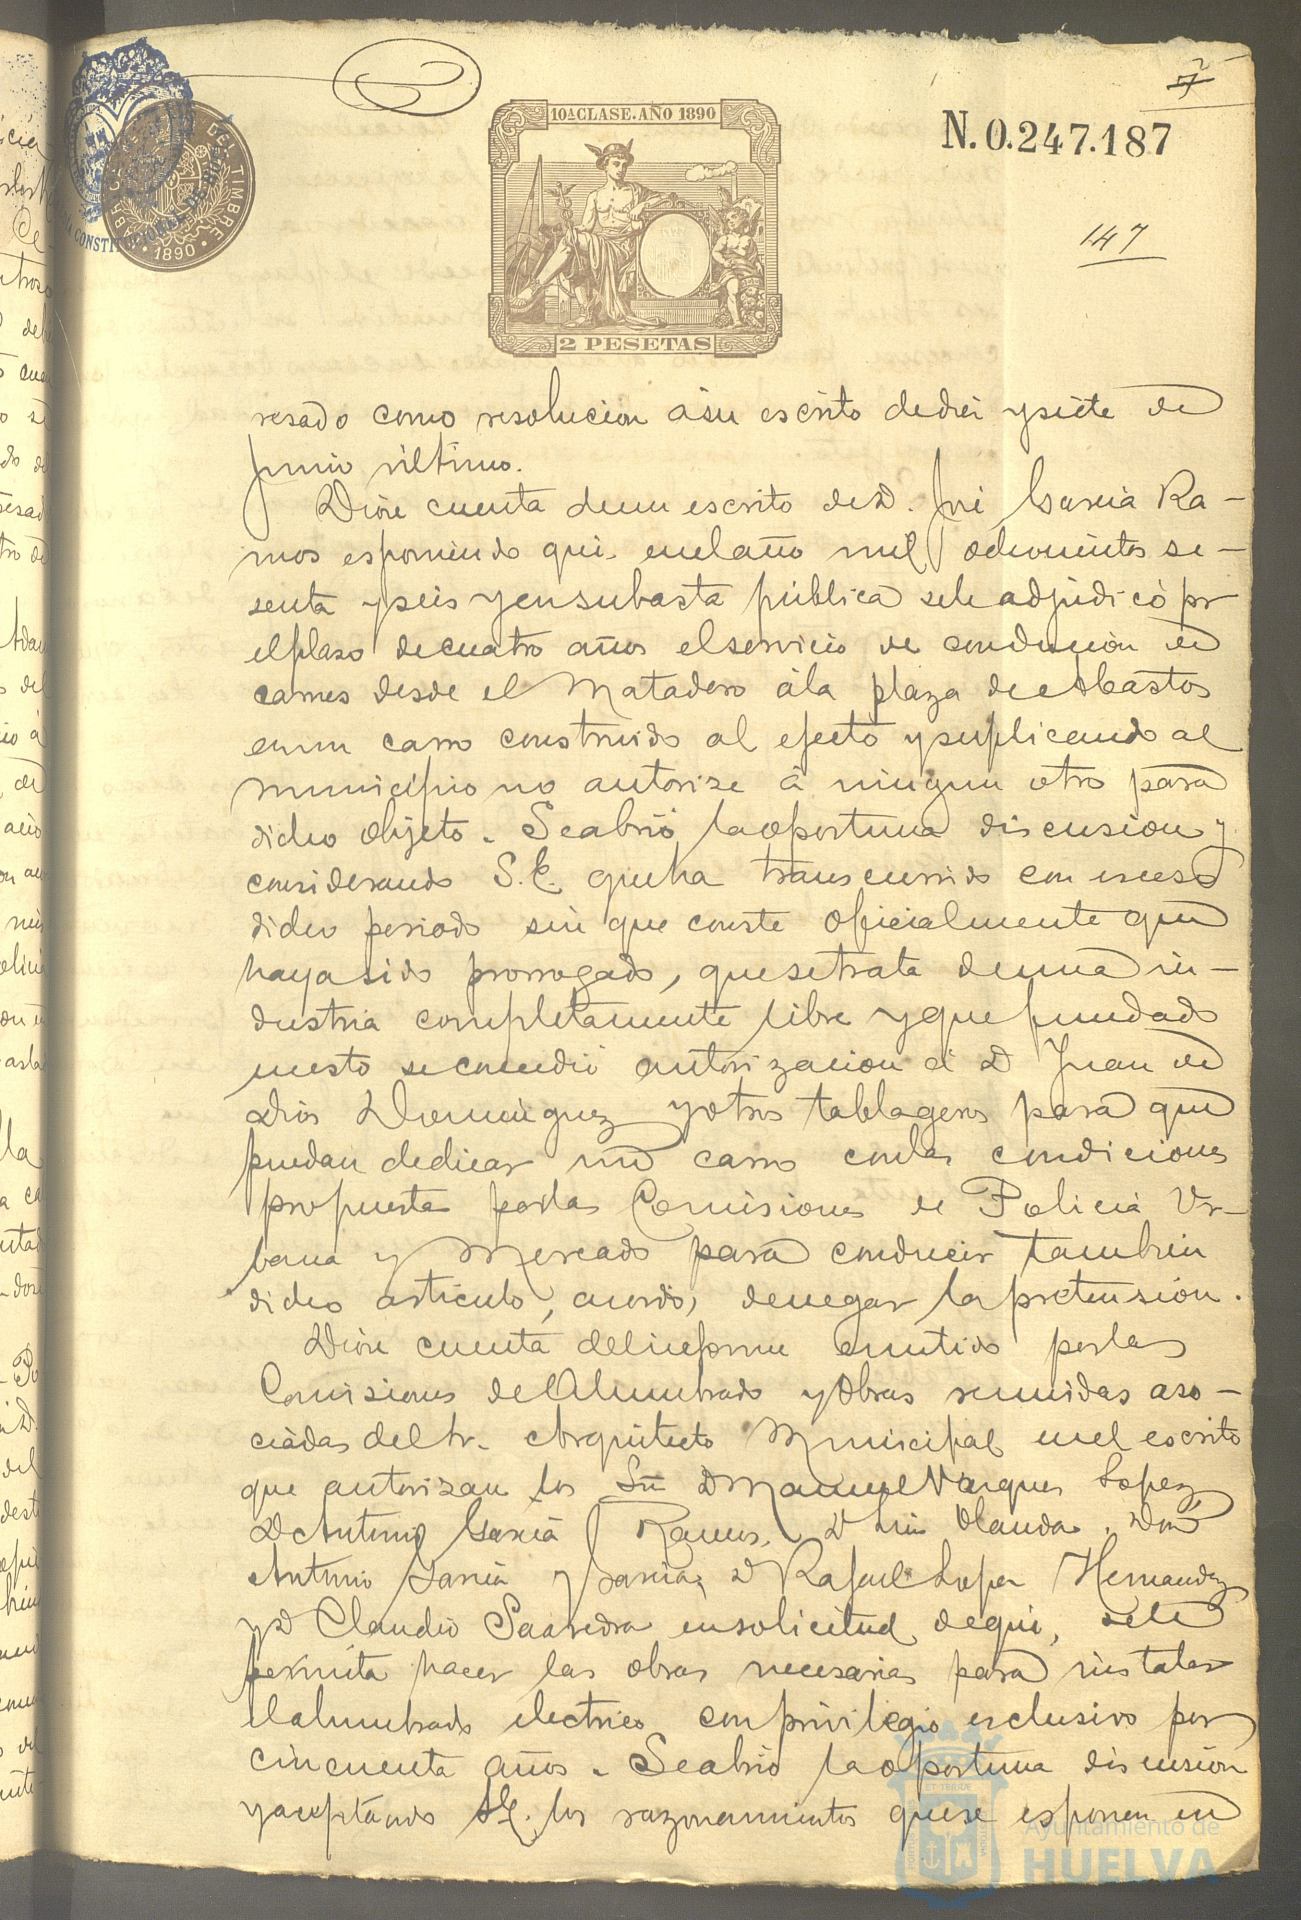 7
10ª CLASE. AÑO 1890
N. 0.247.187
DEL TIMBRE
1890
CONSTITUCIONAL DE
147
2 PESETAS
resado como resolucion a su escrito de diez y siete de
Junio ultimo.
Diose cuenta de un escrito de D. José Garcia Ra-
mos esponiendo que en el año mil ochocientos se-
senta y seis y en subasta pública se le adjudicó pr
el plazo de cuatro años el servicio de conducción de
carnes desde el Matadero á la plaza de Abastos
en un carro construido al efecto y suplicando al
municipio no autorize á ningun otro para
dicho objeto. Se abrió la oportuna discusion y
considerando S.E. que ha transcurrido con esceso
dicho periodo sin que conste oficialmente que
haya sido prorrogado, que se trata de una in-
dustria completamente libre y que fundado
en esto se concedió autorizacion á D Juan de
Dios Dominguez y otros tablageros para que
puedan dedicar un carro con las condiciones
propuestas por las Comisiones de Policia Ur-
bana y Mercado para conducir tambien
dicho articulo, acordó, denegar la pretensión.
Diose cuenta del informe emitido por las
Comisiones de Alumbrado y Obras reunidas aso-
ciadas del Sr. Arquitecto Municipal en el escrito
que autorizan los Sres D Manuel Vazquez Lopez
D Antonio Garcia Ramos, D Luis Olanda, Don
Antonio Garcia y Garcia, D Rafael Lopez Hernandez
y D Claudio Saavedra en solicitud de que, se le
permita hacer las obras necesarias para instalar
el alumbrado electrico con privilegio esclusivo por
cincuenta años. Se abrió la oportuna discusión
y aceptando S.E. los razonamientos que se esponen en
Ayuntamiento de
HUELVA